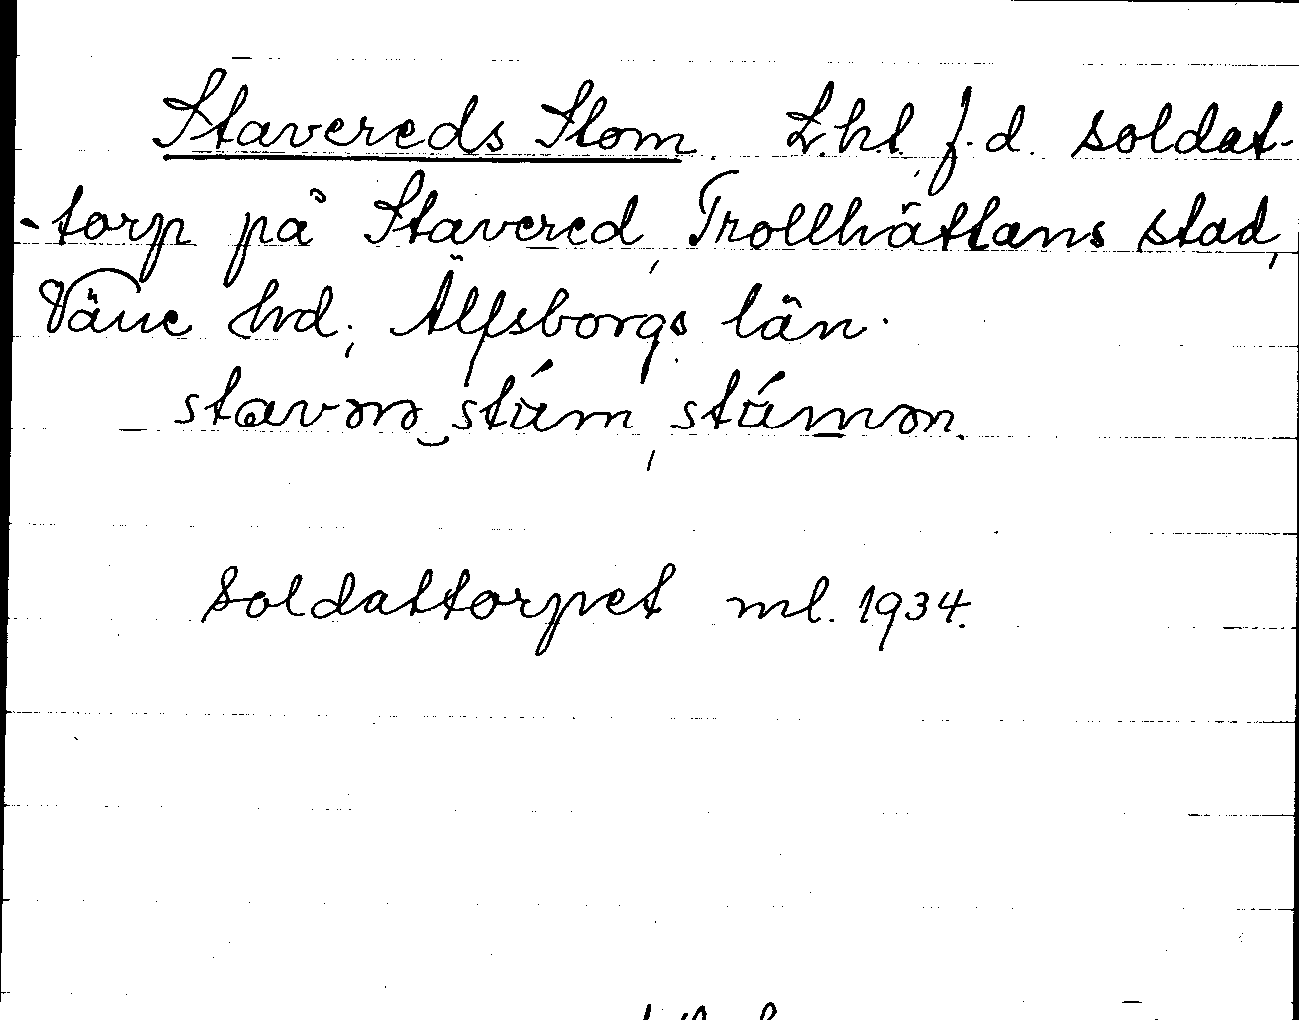 Stavereds Stom. L.hl. f.d. soldat-
-torp på Stavered, Trollhättans stad,
Väne hd, Älfsborgs län.
soldattorpet ml. 1934.